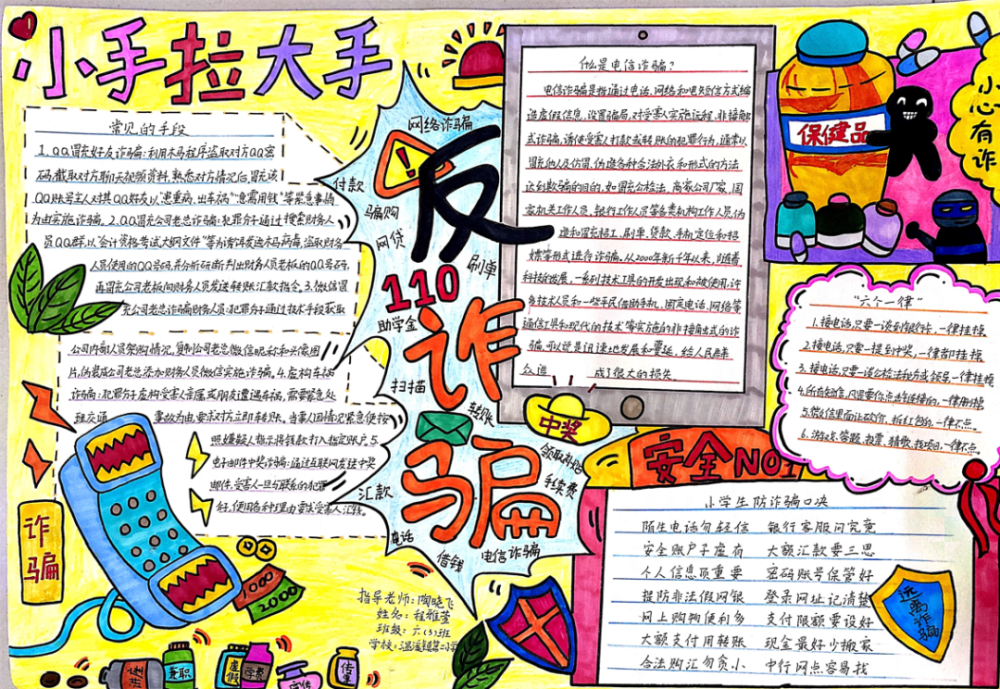 小手拉大手
小心有诈
常见的手段
1.QQ冒充好友诈骗:利用木马程序盗取对方QQ密
码,截取对方聊天视频资料,熟悉对方情况后,冒充该
QQ账号主人对其QQ好友以"患重病,出车祸""急需用钱"等紧急事情
为由实施诈骗。2.QQ冒充公司老总诈骗:犯罪分子通过搜索财务人
员QQ群,以"会计资格考试大纲文件"等为诱饵发送木马病毒,盗取财务
人员使用的QQ号码,并分析研判出财务人员老板的QQ号码,
再冒充公司老板向财务人员发送转账汇款指令。3.微信冒
充公司老总诈骗财务人员:犯罪子通过技术手段获取
公司内部人员架构情况,复制公司老总微信昵称和头像图
片,伪装成公司老总添加财务人员微信实施诈骗。4.虚构车祸
诈骗:犯罪子虚构受害人亲属或朋友遭遇车祸,需要紧急处
理交通
事故为由,要求对方立即转账。当事人因情况紧急便按
照嫌疑人指示将钱款打入指定账户。5.
电子邮件中奖诈骗:通过互联网发送中奖
邮件,受害人一旦与联系的犯罪
子,便以各种理由要求受害人汇钱。
网络诈骗
付款
骗购
网贷
刷单
110
助学金
扫描
转账
领取补贴
手续费
汇款
电话
借钱
电信诈骗
反
诈
骗
什么是电信诈骗?
电信诈骗是指通过电话,网络和电信方式编
造虚假信息,设置骗局,对受害人实施远程,非接触
式诈骗,诱使受害人打款或转账的犯罪行为,通常以
冒充他人及仿冒,伪造各种合法外衣和形式的方法
达到欺骗的目的,如冒充公检法,商家公司厂家,国
家机关工作人员,银行工作人员等各类机构工作人员,伪
造和冒充招工,刷单,贷款,手机定位和招
嫖等形式进行诈骗。从2000年新千年以来,随着
科技的发展,一系列技术工具的开发出现和被使用,许
多技术人员和一些平民借助手机,固定电话,网络等
通信工具和现代的技术等实施的非接触式的诈
骗,可以说是迅速地发展和蔓延,给人民群
众造
成了很大的损失。
中奖
保健品
"六个一律"
1.接电话,只要一谈到银行卡,一律挂掉
2.接电话,只要一提到中奖,一律都挂掉
3.接电话,只要一谈公检法和方式领导,一律挂掉
4.所有短信,只要要你点击链接的,一律删掉
5.微信里面让砍价,拆红包的,一律不点
6.游戏,答题,加需,猜歌,找项目,一律不点
安全NO1
小学生防诈骗口决
陌生电话勿轻信 银行客服问究竟
安全账户子虚有 大额汇款要三思
个人信息顶重要 密码账号保管好
提防非法假网银 登录网址记清楚
网上购物便利多 支付限额要设好
大额支付用转账 现金最好少搬家
合法购汇勿贪小 中行网点容易找
远离诈骗
诈骗
1000
2000
指导老师:陶晓飞
姓名:程雅萱
班级:六(3)班
兼职
虚假
信息